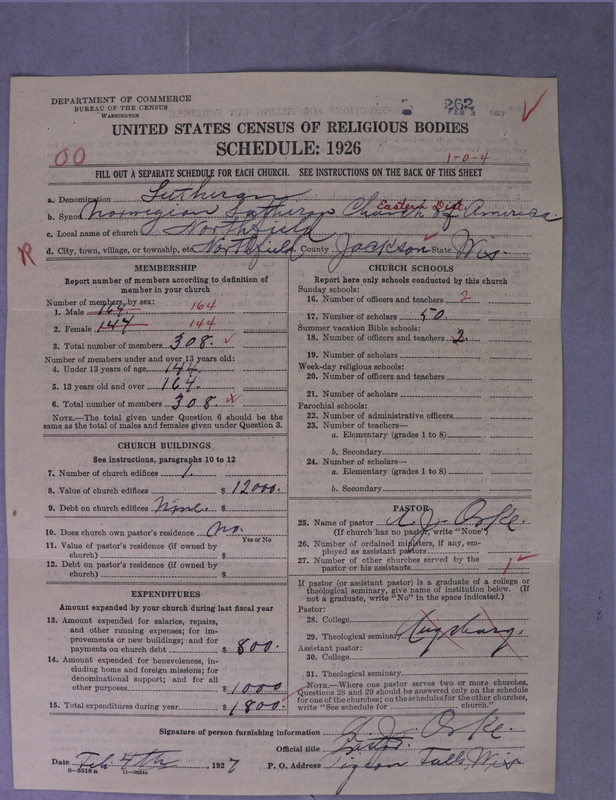 DEPARTMENT OF COMMERCE
BUREAU OF THE CENSUS
WASHINGTON
262
FEB 8 1927
UNITED STATES CENSUS OF RELIGIOUS BODIES
SCHEDULE: 1926
1-0-4
FILL OUT A SEPARATE SCHEDULE FOR EACH CHURCH. SEE INSTRUCTIONS ON THE BACK OF THIS SHEET
a. Denomination Lutheran
Eastern Dist.
b. Synod Norwegian Lutheran Church of America.
c. Local name of church Northfield
d. City, town, village, or township, etc. Northfield County Jackson State Wis.
MEMBERSHIP
Report number of members according to definition of
member in your church
Number of members, by sex:
1. Male 164 164
2. Female 144 144
3. Total number of members 308.
Number of members under and over 13 years old:
4. Under 13 years of age 144
5. 13 years old and over 164.
6. Total number of members 308.
NOTE.—The total given under Question 6 should be
same as the total of males and females given under Question 3.
CHURCH BUILDINGS
See instructions, paragraphs 10 to 12
7. Number of church edifices 1.
8. Value of church edifices $ 12000.
9. Debt on church edifices None. $
10. Does church own pastor's residence No.
Yes or No
11. Value of pastor's residence (if owned by
church) $
12. Debt on pastor's residence (if owned by
church) $
EXPENDITURES
Amount expended by your church during last fiscal year
13. Amount expended for salaries, repairs,
and other running expenses; for im-
provements or new buildings; and for
payments on church debt $ 800.
14. Amount expended for benevolences, in-
cluding home and foreign missions; for
denominational support; and for all
other purposes $ 1000
15. Total expenditures during year $ 1800.
CHURCH SCHOOLS
Report here only schools conducted by this church
Sunday schools:
16. Number of officers and teachers 2
17. Number of scholars 50.
Summer vacation Bible schools:
18. Number of officers and teachers 2.
19. Number of scholars
Week-day religious schools:
20. Number of officers and teachers
21. Number of scholars
Parochial schools:
22. Number of administrative officers
23. Number of teachers—
a. Elementary (grades 1 to 8)
b. Secondary
24. Number of scholars—
a. Elementary (grades 1 to 8)
b. Secondary
PASTOR
25. Name of pastor
(If church has no pastor, write "None")
26. Number of ordained ministers, if any, em-
ployed as assistant pastors
27. Number of other churches served by the
pastor or his assistants 1
If pastor (or assistant pastor) is a graduate of a college or
theological seminary, give name of institution below. (If
not a graduate, write "No" in the space indicated.)
Pastor:
28. College
29. Theological seminary Augsburg.
Assistant pastor:
30. College
31. Theological seminary
NOTE.—Where one pastor serves two or more churches,
Questions 28 and 29 should be answered only on the schedule
for one of the churches; on the schedules for the other churches,
write "See schedule for church."
Signature of person furnishing information
Official title Pastor.
Date Feb. 4th, 1927 P. O. Address Pigeon Falls Wis.